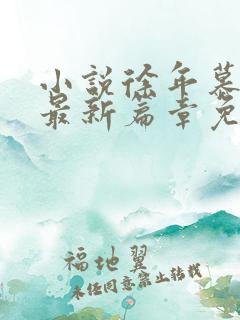 小说徐年慕
最新篇章免
福地翼
未经同意禁止转载